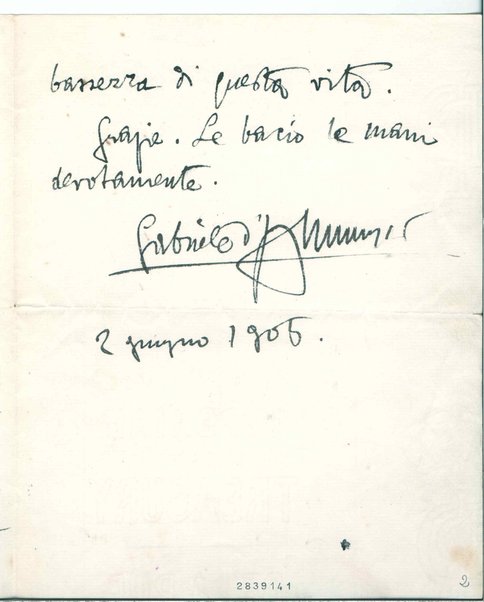 bassezza di questa vita.
Grazie. Le bacio le mani
devotamente.
Gabriele d'Annunzio
2 giugno 1906.
2839141
2